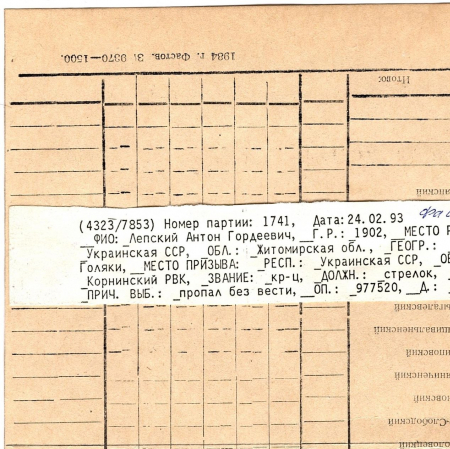 1984 г. Фастов. З. 9370—1500.
Итого:
(4323/7853) Номер партии: 1741, Дата:24.02.93
__ФИО: _Лепский Антон Гордеевич, __Г.Р.: 1902, __МЕСТО Р
_Украинская ССР, _ОБЛ.: _Житомирская обл., _ГЕОГР.:
Голяки, __МЕСТО ПРИЗЫВА: _РЕСП.: _Украинская ССР, _ОБ
_Корнинский РВК, _ЗВАНИЕ: _кр-ц, _ДОЛЖН.: стрелок, _
_ПРИЧ. ВЫБ.: _пропал без вести, __ОП.: _977520, __Д.: _
-Слободский